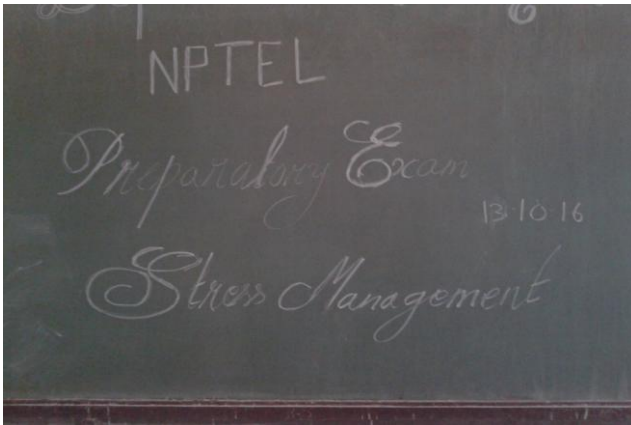 NPTEL
Preparatory Exam
13.10.16
Stress Management